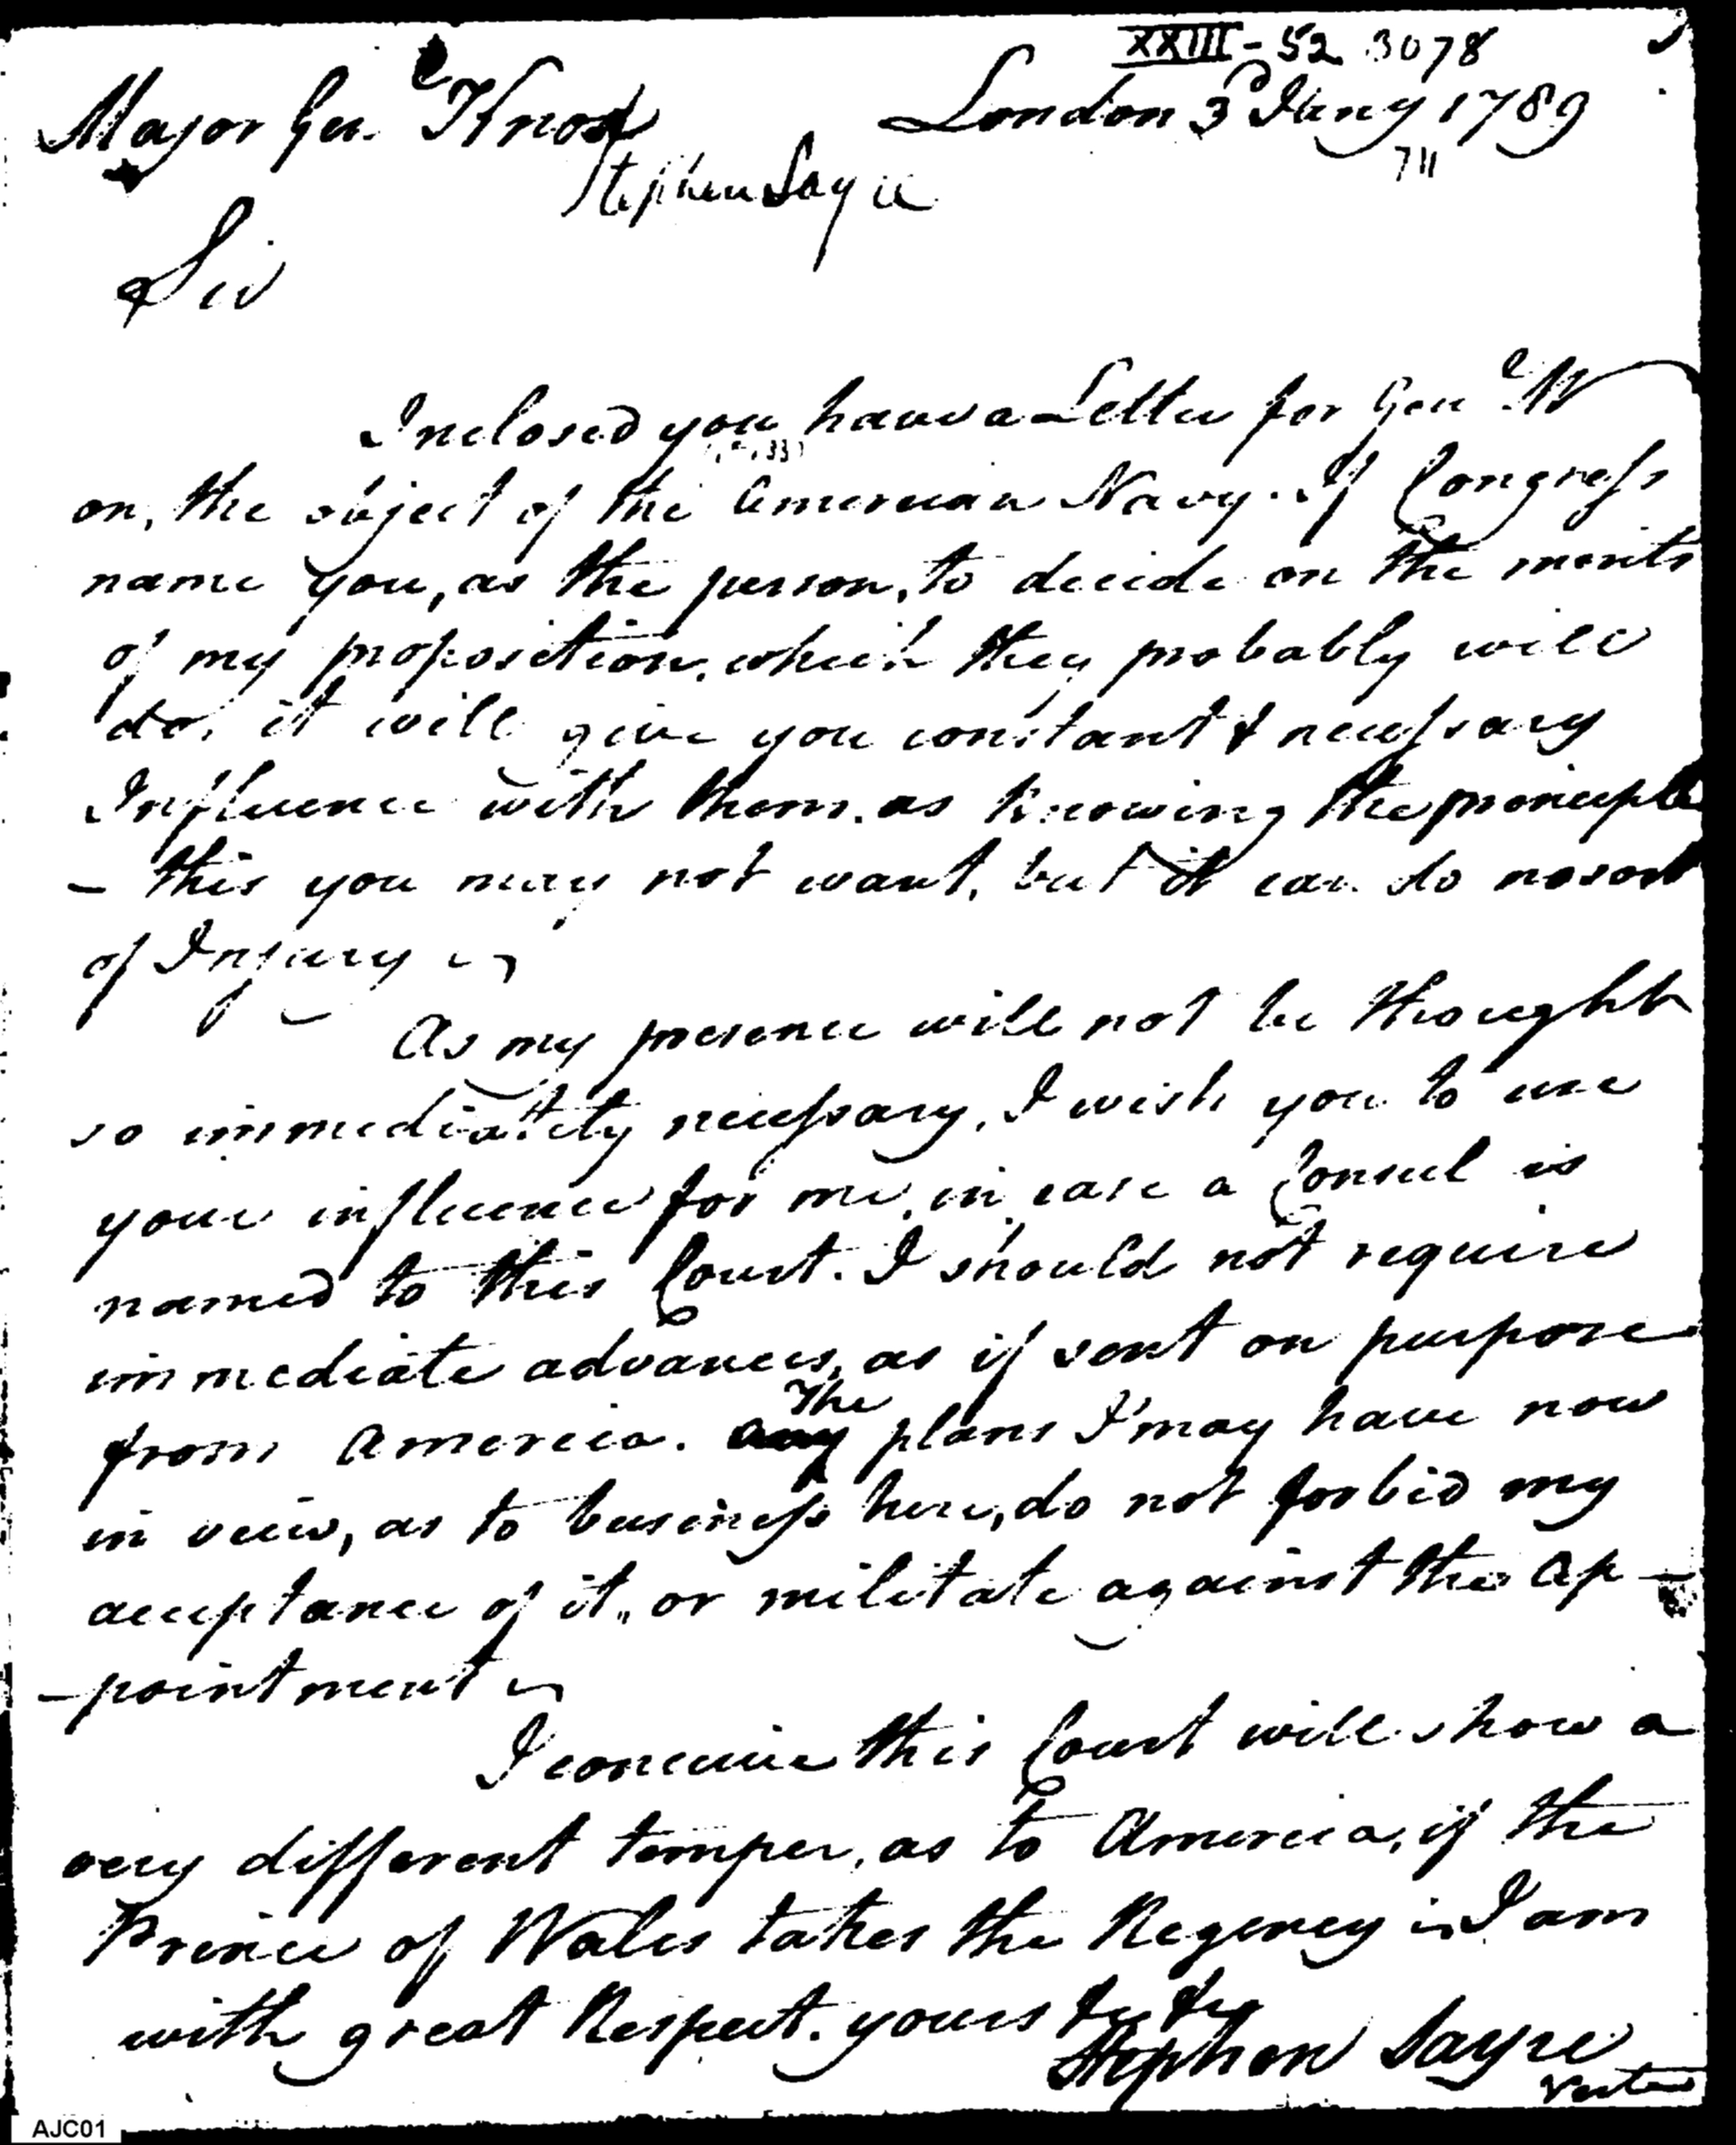 XXIII - 52 3078
Major Gen^l Knox London 3^d Jany 1789
711
Stephen Sayre
Sir
Inclosed you have a Letter for Gen^l W
on, the object of the American Navy. If Congress
name you, as the person, to decide on the merits
of my proposition, which they probably will
do, it will give you constant & necessary
Influence with them, as knowing the principle
- this you may not want, but it can do no sort
of Injury
As my presence will not be thought
so immediately necessary, I wish you to use
your influence for me, in case a Consul is
named to this Court. I should not require
immediate advances, as if sent on purpose
from America. The plans I may have now
in view, as to business here, do not forbid my
acceptance of it, or militate against the Ap-
-pointment
I conceive this Court will show a
very different temper, as to America, if the
Prince of Wales takes the Regency I am
with great Respect. yours &c &c
Stephen Sayre
AJC01